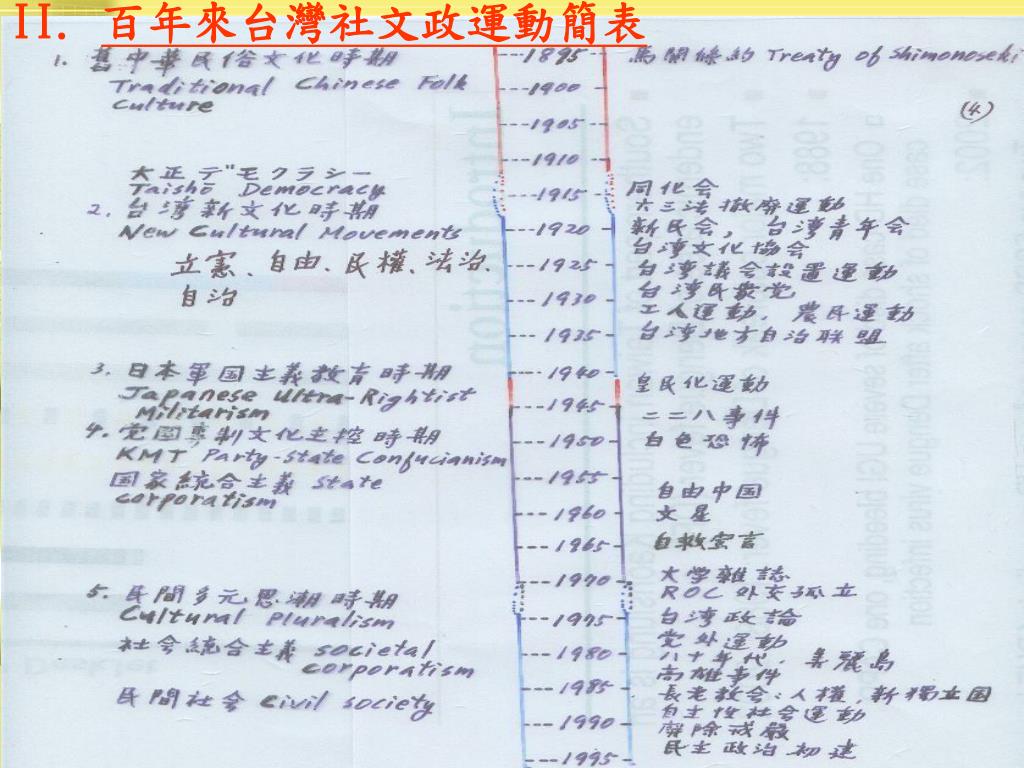 II. 百年來台灣社文政運動簡表
1. 舊中華民俗文化時期
Traditional Chinese Folk
Culture
大正デモクラシー
Taishō Democracy
2. 台湾新文化時期
New Cultural Movements
立憲、自由、民權、法治、
自治
3. 日本軍国主義教育時期
Japanese Ultra-Rightist
Militarism
4. 党國專制文化主控時期
KMT Party-State Confucianism
国家統合主義 State
corporatism
5. 民間多元思潮時期
Cultural Pluralism
社会統合主義 societal
corporatism
民間社会 Civil society
1895
1900
1905
1910
1915
1920
1925
1930
1935
1940
1945
1950
1955
1960
1965
1970
1975
1980
1985
1990
1995
馬関條約 Treaty of Shimonoseki
(4)
同化会
六三法撤廃運動
新民会, 台湾青年会
台湾文化協会
台湾議会設置運動
台湾民衆党
工人運動, 農民運動
台湾地方自治联盟
皇民化運動
二二八事件
白色恐怖
自由中国
文星
自救宣言
大学雜誌
ROC 外交孤立
台湾政論
党外運動
八十年代, 美麗島
高雄事件
長老教会:人權,新獨立国
自主性社会運動
廃除戒嚴
民主政治初建